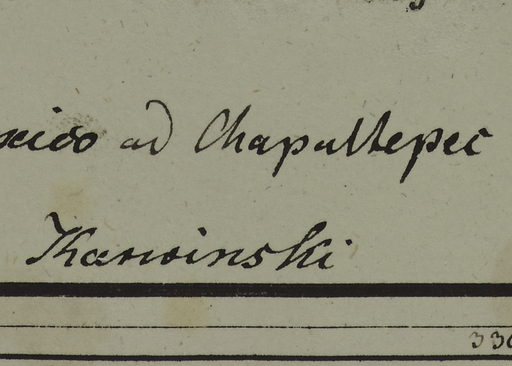 xico ad Chapultepec
Karwinski
330